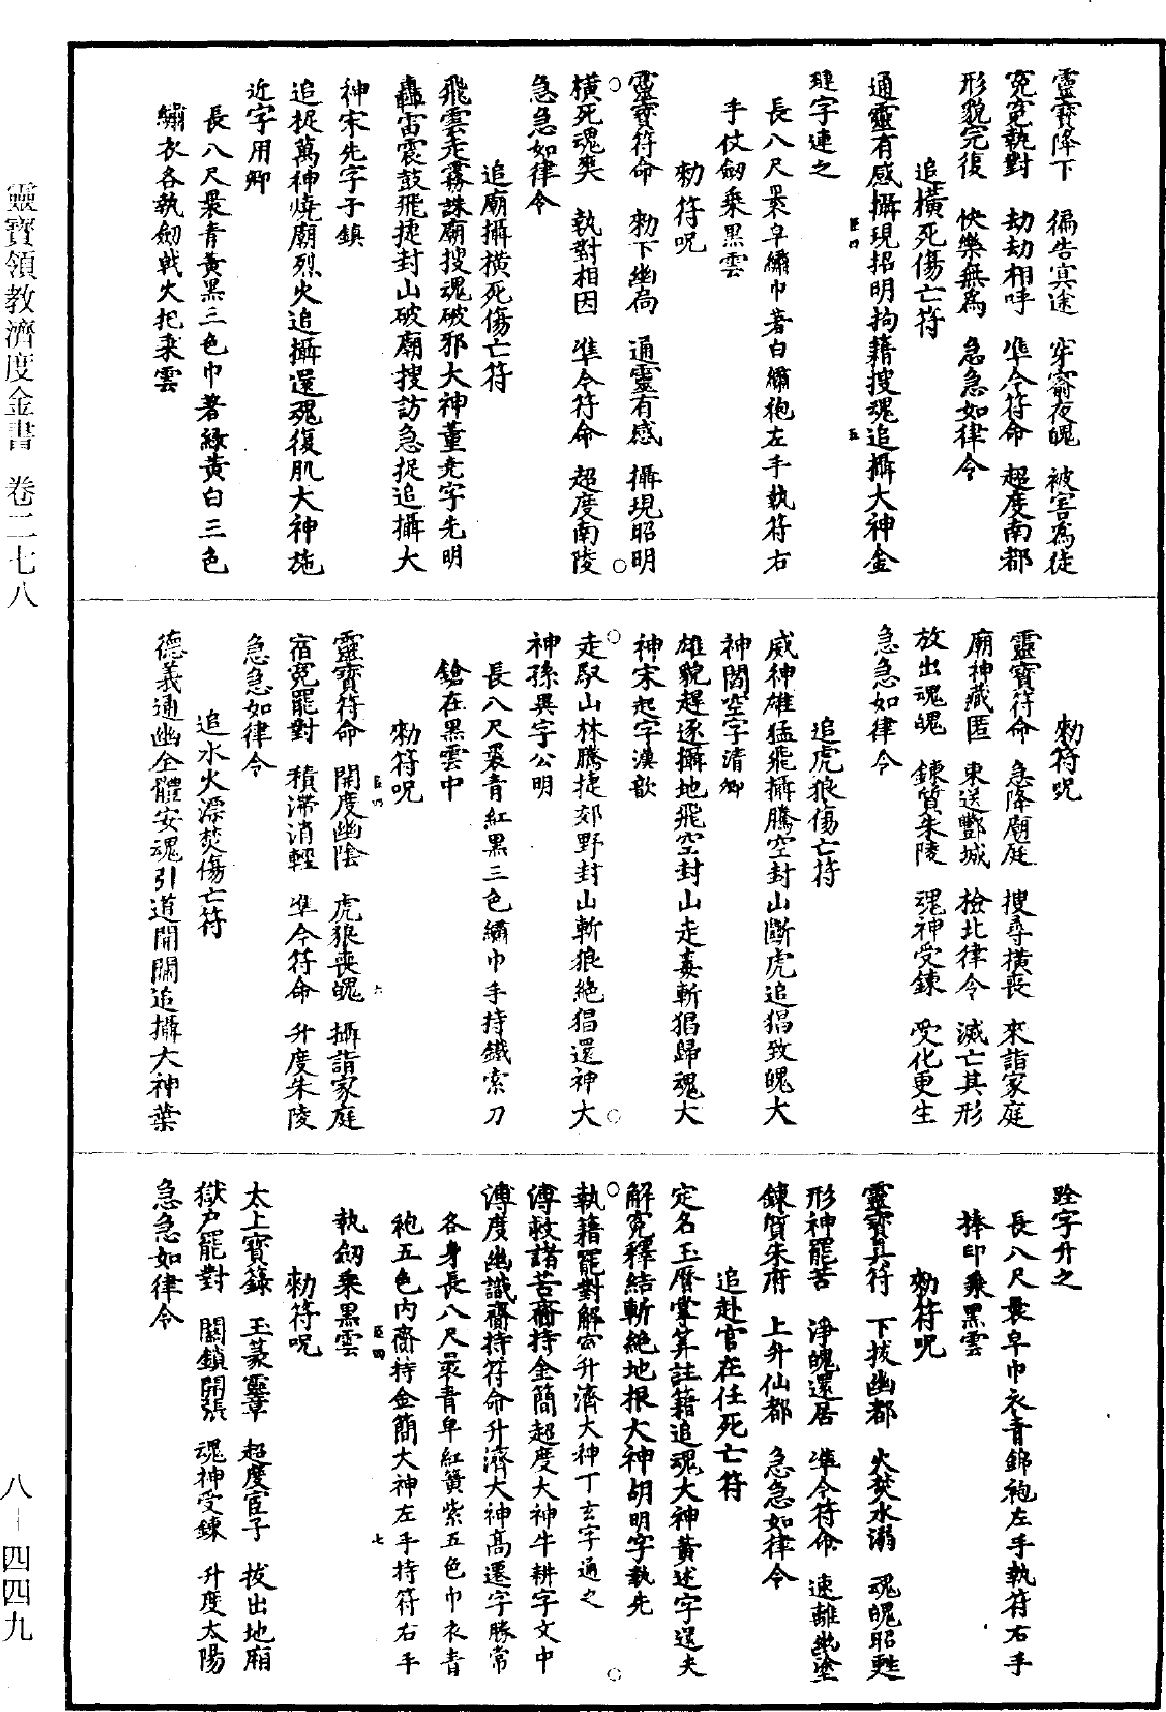 靈寶降下　徧告冥途　穿窬夜魄　被害爲徒
冤冤執對　劫劫相呼　準今符命　超度南都
形貌完復　快樂無爲　急急如律令
追橫死傷亡符
通靈有感攝現招明拘籍搜魂追攝大神金
璉字連之
長八尺裹皁繡巾著白繡袍左手執符右
手仗劒乘黑雲
勑符呪
靈寶符命　勑下幽扃　通靈有感　攝現昭明
橫死魂爽　執對相因　準今符命　超度南陵
急急如律令
追廟攝橫死傷亡符
飛雲走霧誅廟搜魂破邪大神董充字先明
轟雷震鼓飛捷封山破廟搜訪急捉追攝大
神宋先字子鎮
追捉萬神燒廟烈火追攝還魂復肌大神施
近字用卿
長八尺裹青黃黑三色巾著綠黃白三色
繡衣各執劒戟火把乘雲
勑符呪
靈寶符命　急降廟庭　搜尋橫喪　來詣家庭
廟神藏匿　東送酆城　檢北律令　滅亡其形
放出魂魄　鍊質朱陵　魂神受鍊　受化更生
急急如律令
追虎狼傷亡符
威神雄猛飛攝騰空封山斷虎追猖致魄大
神閻空字清卿
雄貌趕逐攝地飛空封山走毒斬猖歸魂大
神宋起字漢歆
走馭山林騰捷郊野封山斬狼絶猖還神大
神孫異字公明
長八尺裹青紅黑三色繡巾手持鐵索刀
鎗在黑雲中
勑符呪
靈寶符命　開度幽陰　虎狼喪魄　攝詣家庭
宿冤罷對　積滯消輕　準今符命　升度朱陵
急急如律令
追水火漂焚傷亡符
德義通幽全體安魂引道開關追攝大神葉
銓字升之
長八尺裹皁巾衣青錦袍左手執符右手
捧印乘黑雲
勑符呪
靈寶真符　下拔幽都　火焚水溺　魂魄昭甦
形神罷苦　淨魄還居　準今符命　速離幽塗
鍊質朱府　上升仙都　急急如律令
追赴官在任死亡符
定名玉曆掌筭註籍追魂大神黃述字還夫
解冤釋結斬絶地根大神胡明字執先
執籍罷對解宿升濟大神丁玄字通之
溥救諸苦齎持金簡超度大神牛耕字文中
溥度幽識齎持符命升濟大神高遷字勝常
各身長八尺裹青皁紅簧紫五色巾衣青
袍五色内齎持金簡大神左手持符右手
執劒乘黑雲
勑符呪
太上寶籙　玉篆靈章　超度宦子　拔出地廂
獄戶罷對　關鎖開張　魂神受鍊　升度太陽
急急如律令
靈寶領教濟度金書　卷二七八
八－四四九